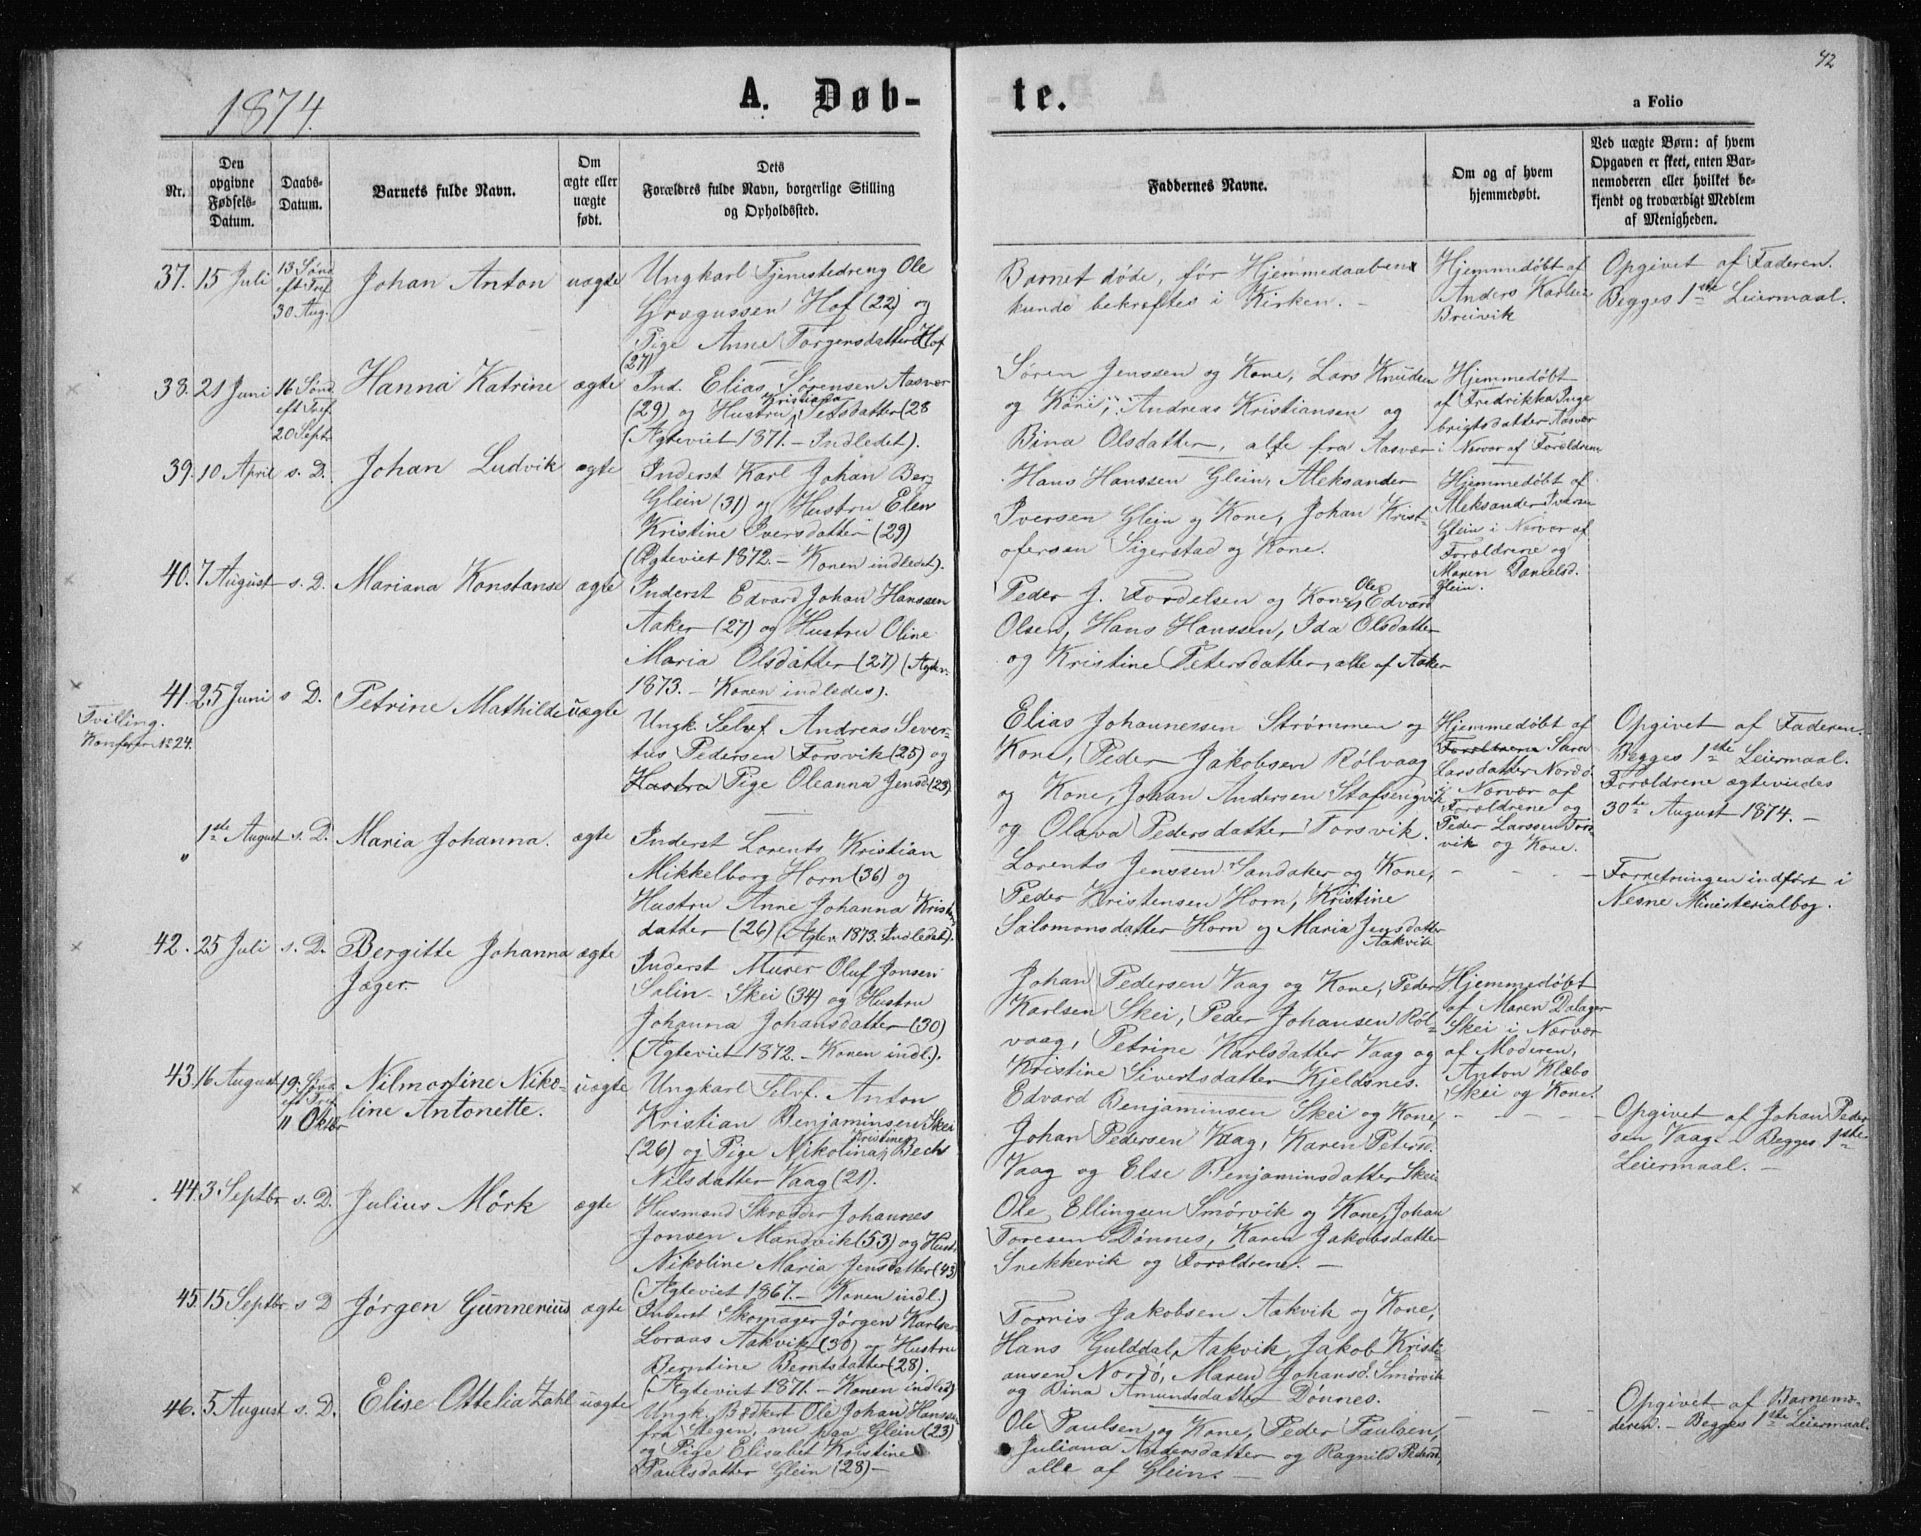 42
1874.
A. Døb-
te.
a Folio
Nr.
Den
opgivne
Fødsels-
Datum.
Daabs-
Datum.
Barnets fulde Navn.
Om
ægte eller
uægte
født.
Dets
Forældres fulde Navn, borgerlige Stilling
og Opholdssted.
Faddernes Navne.
Om og af hvem
hjemmedøbt.
Ved uægte Børn: af hvem
Opgaven er skeet, enten Bar-
nemoderen eller hvilket be-
kjendt og troværdigt Medlem
af Menigheden.
37. 15 Juli
13 Sønd
eft Tref
30 Aug.
Johan Anton
uægte
Ungkarl Tjenestedreng Ole
Hof (22) og
Pige Anne Torgersdatter Hof
(27)
Barnet døde, før Hjemmedaaben
kunde bekræftes i Kirken. –
Hjemmedøbt af
Anders
Breivik
Opgivet af Faderen.
Begges 1ste Leiermaal.
38. 21 Juni
16 Sønd
eft Tref
20 Sept
Hanna Katrine
ægte
Ind. Elias Sørensen Aasvær
(29) og Hustru Kristiana (28
(Ægteviet 1871. – Indledet).
Søren Jenssen og Kone, Lars Knudsen
og Kone, Andreas Kristiansen og
Bina Olsdatter, alle fra Aasvær
Hjemmedøbt
af Fredrikka Inge
brigtsdatter Aasvær
i Nærvær af Forældrene
39. 10 April s. D. Johan Ludvik ægte
Inderst Karl Johan Berg
Glein (31) og Hustru Elen
Kristine Iversdatter (29)
(Ægteviet 1872. – Konen indledet).
Hans Hanssen Glein, Aleksander
Iversen Glein og Kone, Johan Krist-
ofersen Sigerstad og Kone.
Hjemmedøbt af
Aleksander Iversen
Glein i Nærvær af
Forældrene og
Maren Danielsd.
Glein.
40. 7 August s. D. Mariana Konstanse ægte
Inderst Edvard Johan Hanssen
Aaker (27) og Hustru Oline
Maria Olsdatter (27) (Ægtev.
1873. – Konen indledet).
Peder J. Fordelsen og Kone, Ole Edvard
Olsen, Hans Hanssen, Ida Olsdatter
og Kristine Petersdatter, alle af Aaker
41. 25 Juni s D. Petrine Mathilde uægte
Tvilling.
Konferer No 24.
Ungk. Selvf. Andreas Sever-
tus Pedersen Forsvik (25) og
Hustru Pige Oleanna Jensd (23)
Elias Johannessen Strømmen og
Kone, Peder Jakobsen Rølvaag
og Kone, Johan Andersen Stafsengvik
og Olava Pedersdatter Forsvik.
Hjemmedøbt af
Forældrene Sara
Larsdatter Nordø
i Nærvær af
Forældrene og
Peder Larssen Fors
vik og Kone.
Opgivet af Faderen.
Begges 1ste Leiermaal.
Forældrene ægteviedes
30te August 1874. –
" 1ste August s. D. Maria Johanna. ægte
Inderst Lorents Kristian
Mikkelborg Horn (36) og
Hustru Anne Johanna Krist
datter (26) (Ægtev. 1873. Indledet).
Lorents Jenssen Sandaker og Kone,
Peder Kristensen Horn, Kristine
Salomonsdatter Horn og Maria Jensdatter
Aakvik
Forretningen indført i
Nesne Ministerialbog.
42. 25 Juli s. D. Bergitte Johanna ægte
Jæger.
Inderst Murer Oluf Jonsen
Solin Skei (34) og Hustru
Johanna Johansdatter (30)
(Ægteviet 1872. – Konen indl.).
Johan Pedersen Vaag og Kone, Peder
Karlsen Skei, Peder Johansen Røl-
vaag, Petrine Karlsdatter Vaag og
Kristine Sivertsdatter Kjeldsnes.
Hjemmedøbt
af Maren Dalager
Skei i Nærvær
af Moderen,
Anton Klæbo
Skei og Kone.
43. 16 August
19. Sønd
eft Tref
11 Oktbr
Nilmartine Niko-
line Antonette.
uægte
Ungkarl Selvf. Anton
Kristian Benjaminsen Skei
(26) og Pige Nikolina Kristine Bech
Nilsdatter Vaag (21).
Edvard Benjaminsen Skei og Kone,
Johan Pedersen Vaag, Karen Petersd.
Vaag og Else Benjaminsdatter Skei
Opgivet af Johan Peder
sen Vaag. – Begges 1ste
Leiermaal. –
44. 3 Septbr s. D. Julius Mørk ægte
Husmand Skrædder Johannes
Jonsen Mandvik (53) og Hustr.
Nikoline Maria Jensdatter (43)
(Ægteviet 1867. – Konen indl.)
Ole Ellingsen Smørvik og Kone, Johan
Toresen Dønnes, Karen Jakobsdatter
Snekkevik og Forældrene. –
45. 15 Septbr s D Jørgen Gunnerius ægte
Inderst Skomager Jørgen Karlsen
Loraas Aakvik (30) og Hustru
Berntine Berntsdatter (28).
(Ægteviet 1871. – Konen indled)
Tornis Jakobsen Aakvik og Kone,
Hans Gulddal Aakvik, Jakob Kristi-
ansen Nordø, Maren Johansd. Smørvik
og Bina Amundsdatter Dønnes.
46. 5 August s. D. Elise Ottelia Zahl uægte
Ungk. Bødkert Ole Johan Hanssen
fra Stegen, nu paa Glein (23)
og Pige Elisabet Kristine
Paulsdatter Glein (28) –
Ole Paulsen og Kone, Peder Paulsen,
Juliana Andersdatter og Ragnild Pedersd,
alle af Glein. –
Opgivet af Barnemo-
deren. – Begges 1ste Leiermaal.